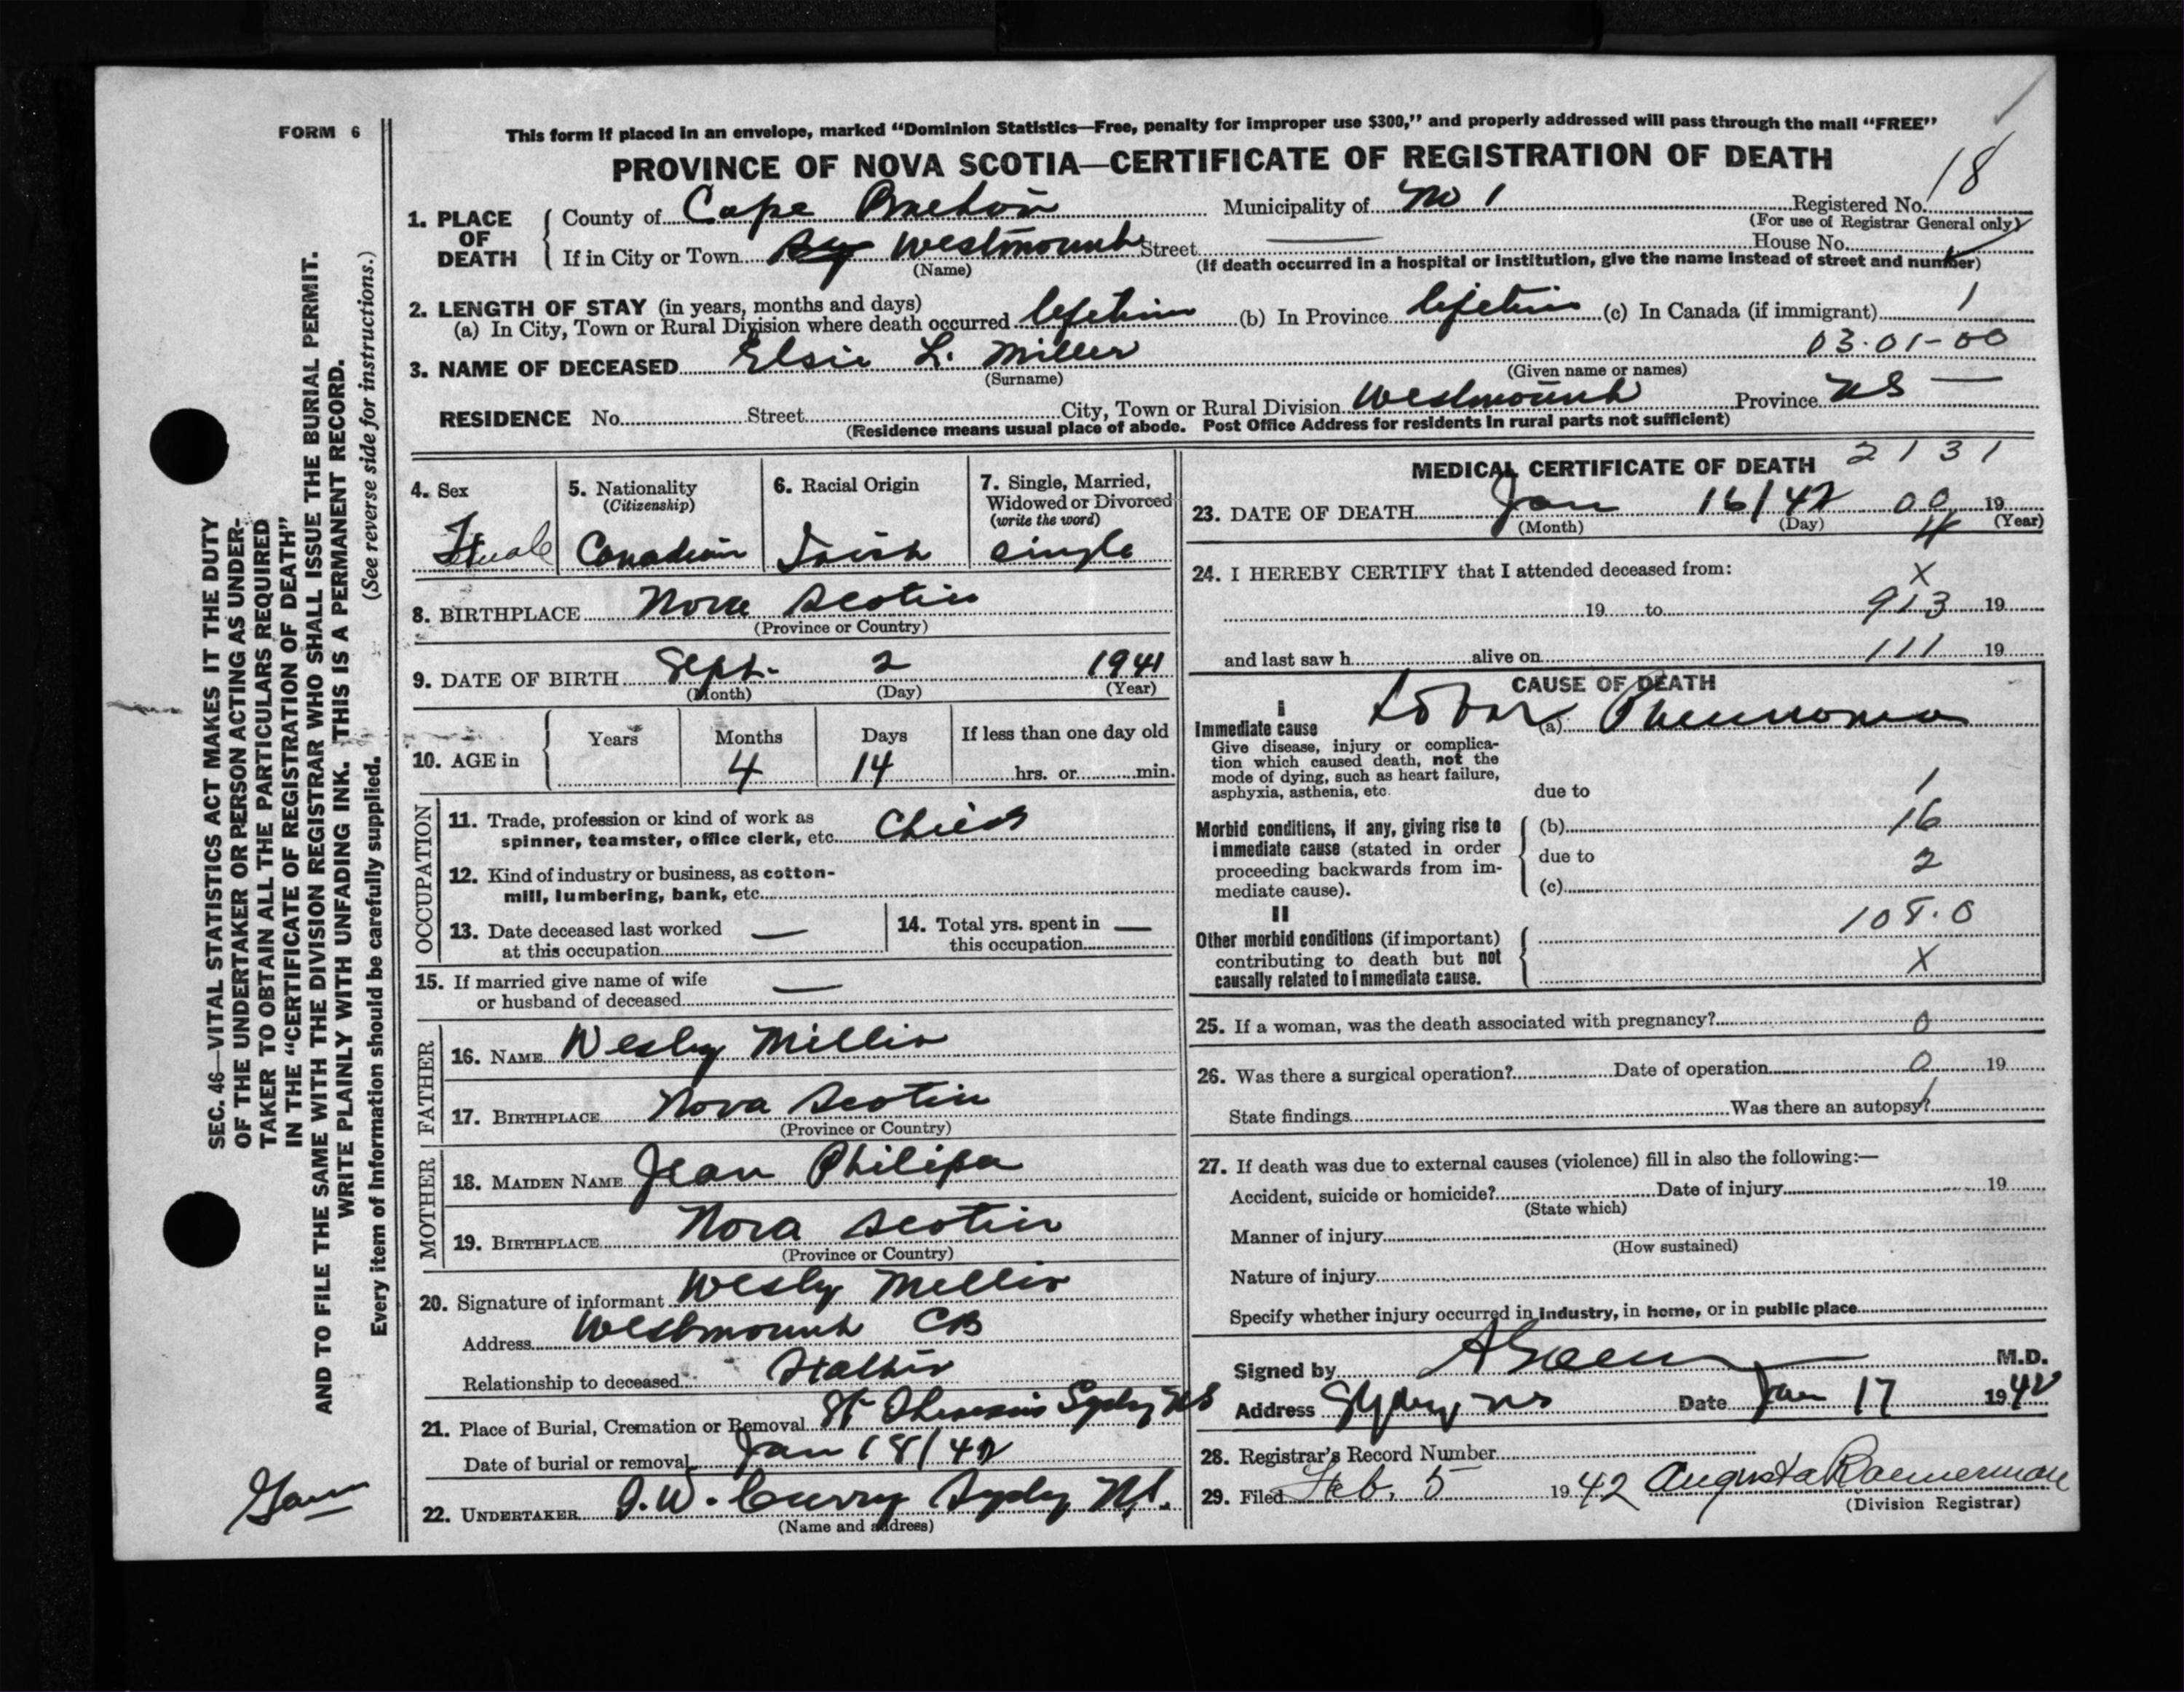 FORM 6
This form if placed in an envelope, marked “Dominion Statistics—Free, penalty for improper use $300,” and properly addressed will pass through the mail “FREE”
PROVINCE OF NOVA SCOTIA—CERTIFICATE OF REGISTRATION OF DEATH
1. PLACE OF DEATH
County of Cape Breton Municipality of No 1 Registered No. 18
(For use of Registrar General only)
If in City or Town Sy Westmount Street — House No.
(Name) (If death occurred in a hospital or institution, give the name instead of street and number)
2. LENGTH OF STAY (in years, months and days)
(a) In City, Town or Rural Division where death occurred lifetime (b) In Province lifetime (c) In Canada (if immigrant) 1
03·01-00
3. NAME OF DECEASED Elsie L. Miller
(Surname) (Given name or names)
RESIDENCE No. Street City, Town or Rural Division Westmount Province NS —
(Residence means usual place of abode. Post Office Address for residents in rural parts not sufficient)
4. Sex
Female
5. Nationality
(Citizenship)
Canadian
6. Racial Origin
Irish
7. Single, Married, Widowed or Divorced
(write the word)
single
8. BIRTHPLACE Nova Scotia
(Province or Country)
9. DATE OF BIRTH Sept. 2 1941
(Month) (Day) (Year)
10. AGE in
Years Months Days If less than one day old
4 14 hrs. or min.
OCCUPATION
11. Trade, profession or kind of work as
spinner, teamster, office clerk, etc. Child
12. Kind of industry or business, as cotton-
mill, lumbering, bank, etc.
13. Date deceased last worked —
at this occupation
14. Total yrs. spent in —
this occupation
15. If married give name of wife —
or husband of deceased
FATHER
16. NAME Wesly Miller
17. BIRTHPLACE Nova Scotia
(Province or Country)
MOTHER
18. MAIDEN NAME Jean
19. BIRTHPLACE Nova Scotia
(Province or Country)
20. Signature of informant Wesly Miller
Address Westmount CB
Relationship to deceased Father
21. Place of Burial, Cremation or Removal St Sydney NS
Date of burial or removal Jan 18/42
22. UNDERTAKER W. Curry Sydney N.S.
(Name and address)
MEDICAL CERTIFICATE OF DEATH 2131
23. DATE OF DEATH Jan 16/42 00 19
(Month) (Day) (Year)
24. I HEREBY CERTIFY that I attended deceased from:
X
19 to 913 19
and last saw h alive on 111 19
CAUSE OF DEATH
I
Immediate cause Lobar (a) Pneumonia
Give disease, injury or complica-
tion which caused death, not the
mode of dying, such as heart failure,
asphyxia, asthenia, etc. due to 1
Morbid conditions, if any, giving rise to (b) 16
immediate cause (stated in order due to 2
proceeding backwards from im- (c)
mediate cause).
II
108.0
Other morbid conditions (if important)
contributing to death but not X
causally related to immediate cause.
25. If a woman, was the death associated with pregnancy? 0
26. Was there a surgical operation? Date of operation 0 19
State findings Was there an autopsy? 1
27. If death was due to external causes (violence) fill in also the following:—
Accident, suicide or homicide? Date of injury 19
(State which)
Manner of injury
(How sustained)
Nature of injury
Specify whether injury occurred in industry, in home, or in public place
Signed by M.D.
Address Sydney NS Date Jan 17 1942
28. Registrar's Record Number
29. Filed Feb. 5 1942 Augusta
(Division Registrar)
SEC. 46—VITAL STATISTICS ACT MAKES IT THE DUTY
OF THE UNDERTAKER OR PERSON ACTING AS UNDER-
TAKER TO OBTAIN ALL THE PARTICULARS REQUIRED
IN THE “CERTIFICATE OF REGISTRATION OF DEATH”
AND TO FILE THE SAME WITH THE DIVISION REGISTRAR WHO SHALL ISSUE THE BURIAL PERMIT.
WRITE PLAINLY WITH UNFADING INK. THIS IS A PERMANENT RECORD.
Every item of information should be carefully supplied. (See reverse side for instructions.)